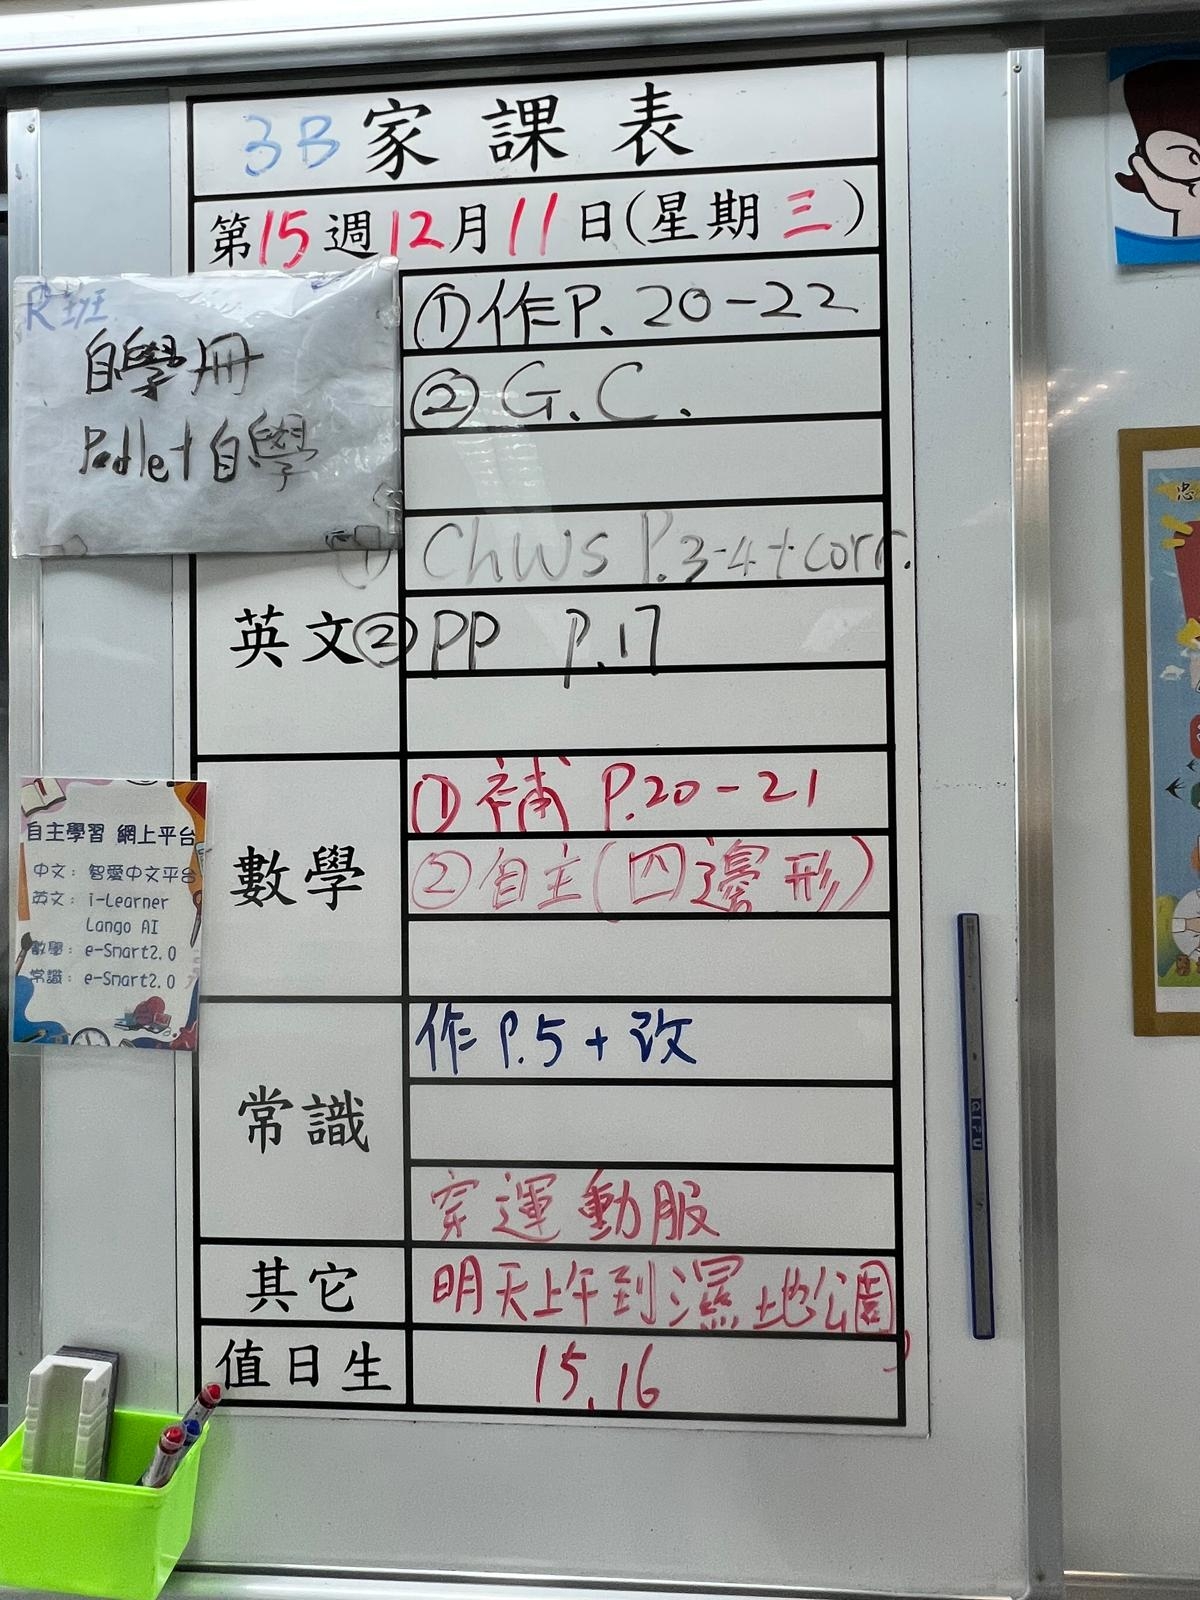 3B家課表
第15週12月11日(星期三)
R班
自學冊
Padlet自學
①作P. 20-22
②G.C.
英文
① ChWs P.3-4+corr.
②PP P.17
數學
①補 P.20-21
②自主(四邊形)
自主學習 網上平台
中文: 智愛中文平台
英文: i-Learner
Lango AI
數學: e-Smart2.0
常識: e-Smart2.0
常識
作 P.5 + 改
穿運動服
其它
明天上午到濕地公園,
值日生
15.16